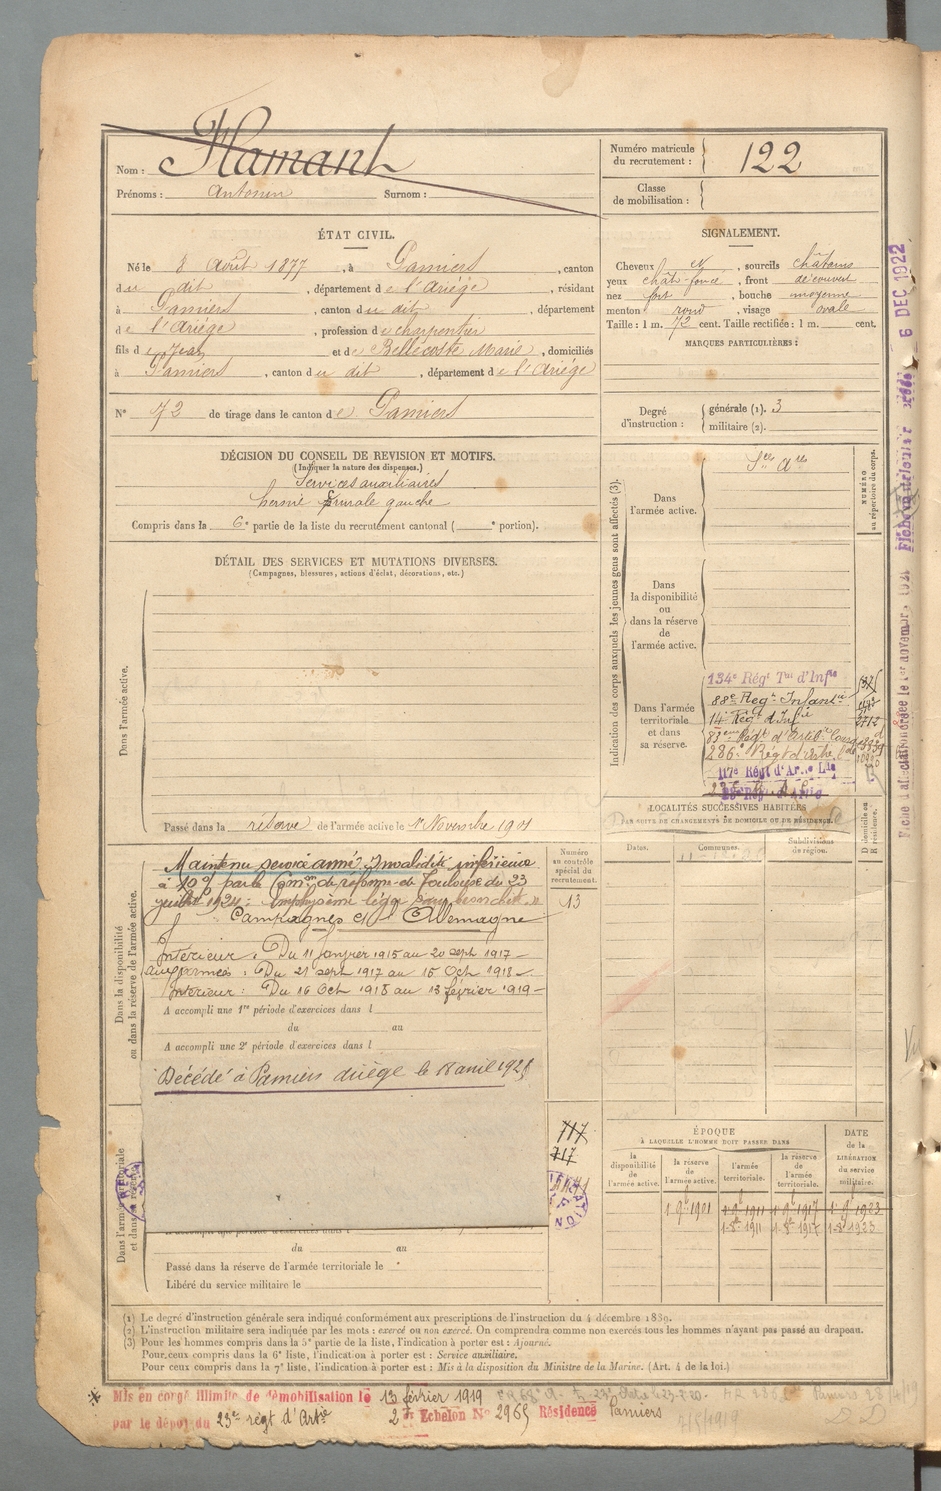 Nom : Flamant
Prénoms : Antonin Surnom :
Numéro matricule du recrutement : 122
Classe de mobilisation :
ÉTAT CIVIL.
Né le 8 Août 1877, à Pamiers, canton
du dit, département de l'Ariège, résidant
à Pamiers, canton du dit, département
de l'Ariège, profession de charpentier
fils de Jean et de Bellecoste Marie, domiciliés
à Pamiers, canton du dit, département de l'Ariège
N° 72 de tirage dans le canton de Pamiers
SIGNALEMENT.
Cheveux N, sourcils châtains
yeux chât-foncé, front découvert
nez fort, bouche moyenne
menton rond, visage ovale
Taille : 1 m. 72 cent. Taille rectifiée : 1 m. cent.
MARQUES PARTICULIÈRES :
Degré d'instruction : générale (1). 3
militaire (2).
DÉCISION DU CONSEIL DE REVISION ET MOTIFS.
(Indiquer la nature des dispenses.)
Services auxiliaires
hernie crurale gauche
Compris dans la 6e partie de la liste du recrutement cantonal ( e portion).
DÉTAIL DES SERVICES ET MUTATIONS DIVERSES.
(Campagnes, blessures, actions d'éclat, décorations, etc.)
Dans l'armée active.
Passé dans la réserve de l'armée active le 1er Novembre 1901
Indication des corps auxquels les jeunes gens sont affectés (3).
NUMÉRO au répertoire du corps.
Dans l'armée active.
Dans la disponibilité ou dans la réserve de l'armée active.
Dans l'armée territoriale et dans sa réserve.
134e Régt Tal d'Infie
88e Regt Infantie
14e Régt d'Infie
286e Régt
117e Régt d'Ar
LOCALITÉS SUCCESSIVES HABITÉES
PAR SUITE DE CHANGEMENTS DE DOMICILE OU DE RÉSIDENCE.
Dates. Communes. Subdivisions de région. D domicile ou R résidence.
Dans la disponibilité ou dans la réserve de l'armée active.
Numéro au contrôle spécial du recrutement.
13
Maintenu service armé Invalidité inférieure
à 10% par la Comon de réforme de Toulouse du 23
1924 : emphysème léger
Campagnes Ct Allemagne
Intérieur : Du 11 janvier 1915 au 20 sept 1917
aux armées : Du 21 sept 1917 au 15 Oct 1918
Intérieur : Du 16 Oct 1918 au 13 février 1919
A accompli une 1re période d'exercices dans l
du au
A accompli une 2e période d'exercices dans l
Décédé à Pamiers Ariège le 18 avril 192
717
717
Dans l'armée territoriale et dans sa réserve.
du au
Passé dans la réserve de l'armée territoriale le
Libéré du service militaire le
ÉPOQUE
A LAQUELLE L'HOMME DOIT PASSER DANS
la disponibilité de l'armée active. la réserve de l'armée active. l'armée territoriale. la réserve de l'armée territoriale.
DATE de la LIBÉRATION du service militaire.
1 9bre 1901 1 9bre 1911 1 9bre 1917 1 9bre 1923
1-8bre 1911 1-8bre 1917 1-8bre 1923
(1) Le degré d'instruction générale sera indiqué conformément aux prescriptions de l'instruction du 4 décembre 1889.
(2) L'instruction militaire sera indiquée par les mots : exercé ou non exercé. On comprendra comme non exercés tous les hommes n'ayant pas passé au drapeau.
(3) Pour les hommes compris dans la 5e partie de la liste, l'indication à porter est : Ajourné.
Pour ceux compris dans la 6e liste, l'indication à porter est : Service auxiliaire.
Pour ceux compris dans la 7e liste, l'indication à porter est : Mis à la disposition du Ministre de la Marine. (Art. 4 de la loi.)
Mis en congé illimité de démobilisation le 13 février 1919
par le dépôt du 23e régt d'Artie 2e Echelon N° 2965 Résidence Pamiers
6 DEC 1922